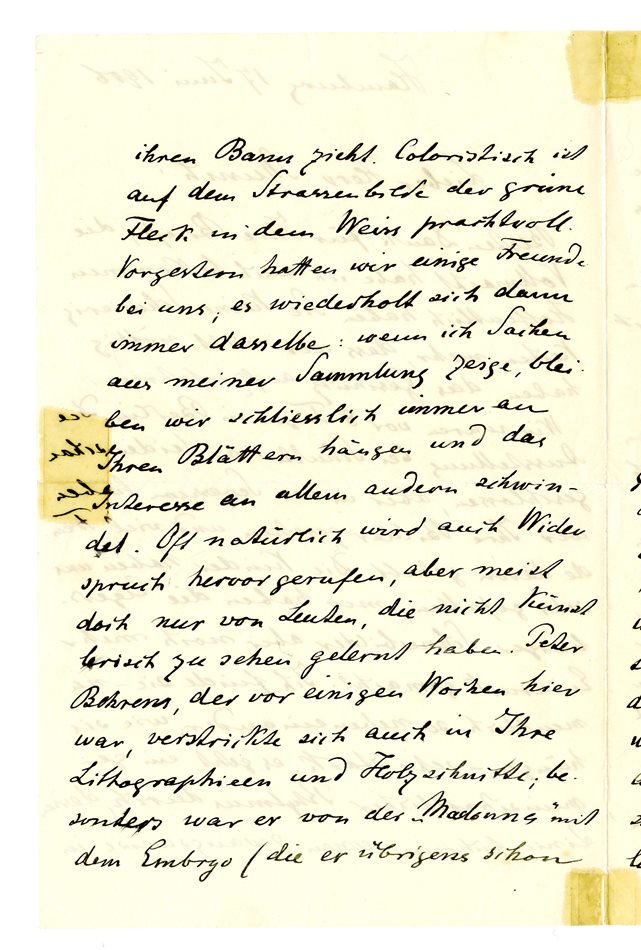 ihren Bann zieht. Coloristisch ist
auf dem Strassenbilde der grüne
Fleck in dem Weiss prachtvoll.
Vorgestern hatten wir einige Freunde
bei uns, es wiederholt sich dann
immer dasselbe: wenn ich Sachen
aus meiner Sammlung zeige, blei-
ben wir schliesslich immer an
Ihren Blättern hängen und das
Interesse an allem andern schwin-
det. Oft natürlich wird auch Wider
spruch hervorgerufen, aber meist
doch nur von Leuten, die nicht künst
lerisch zu sehen gelernt haben. Peter
Behrens, der vor einigen Wochen hier
war, verstrickte sich auch in Ihre
Lithographieen und Holzschnitte; be-
sonders war er von der „Madonna" mit
dem Embryo (die er übrigens schon